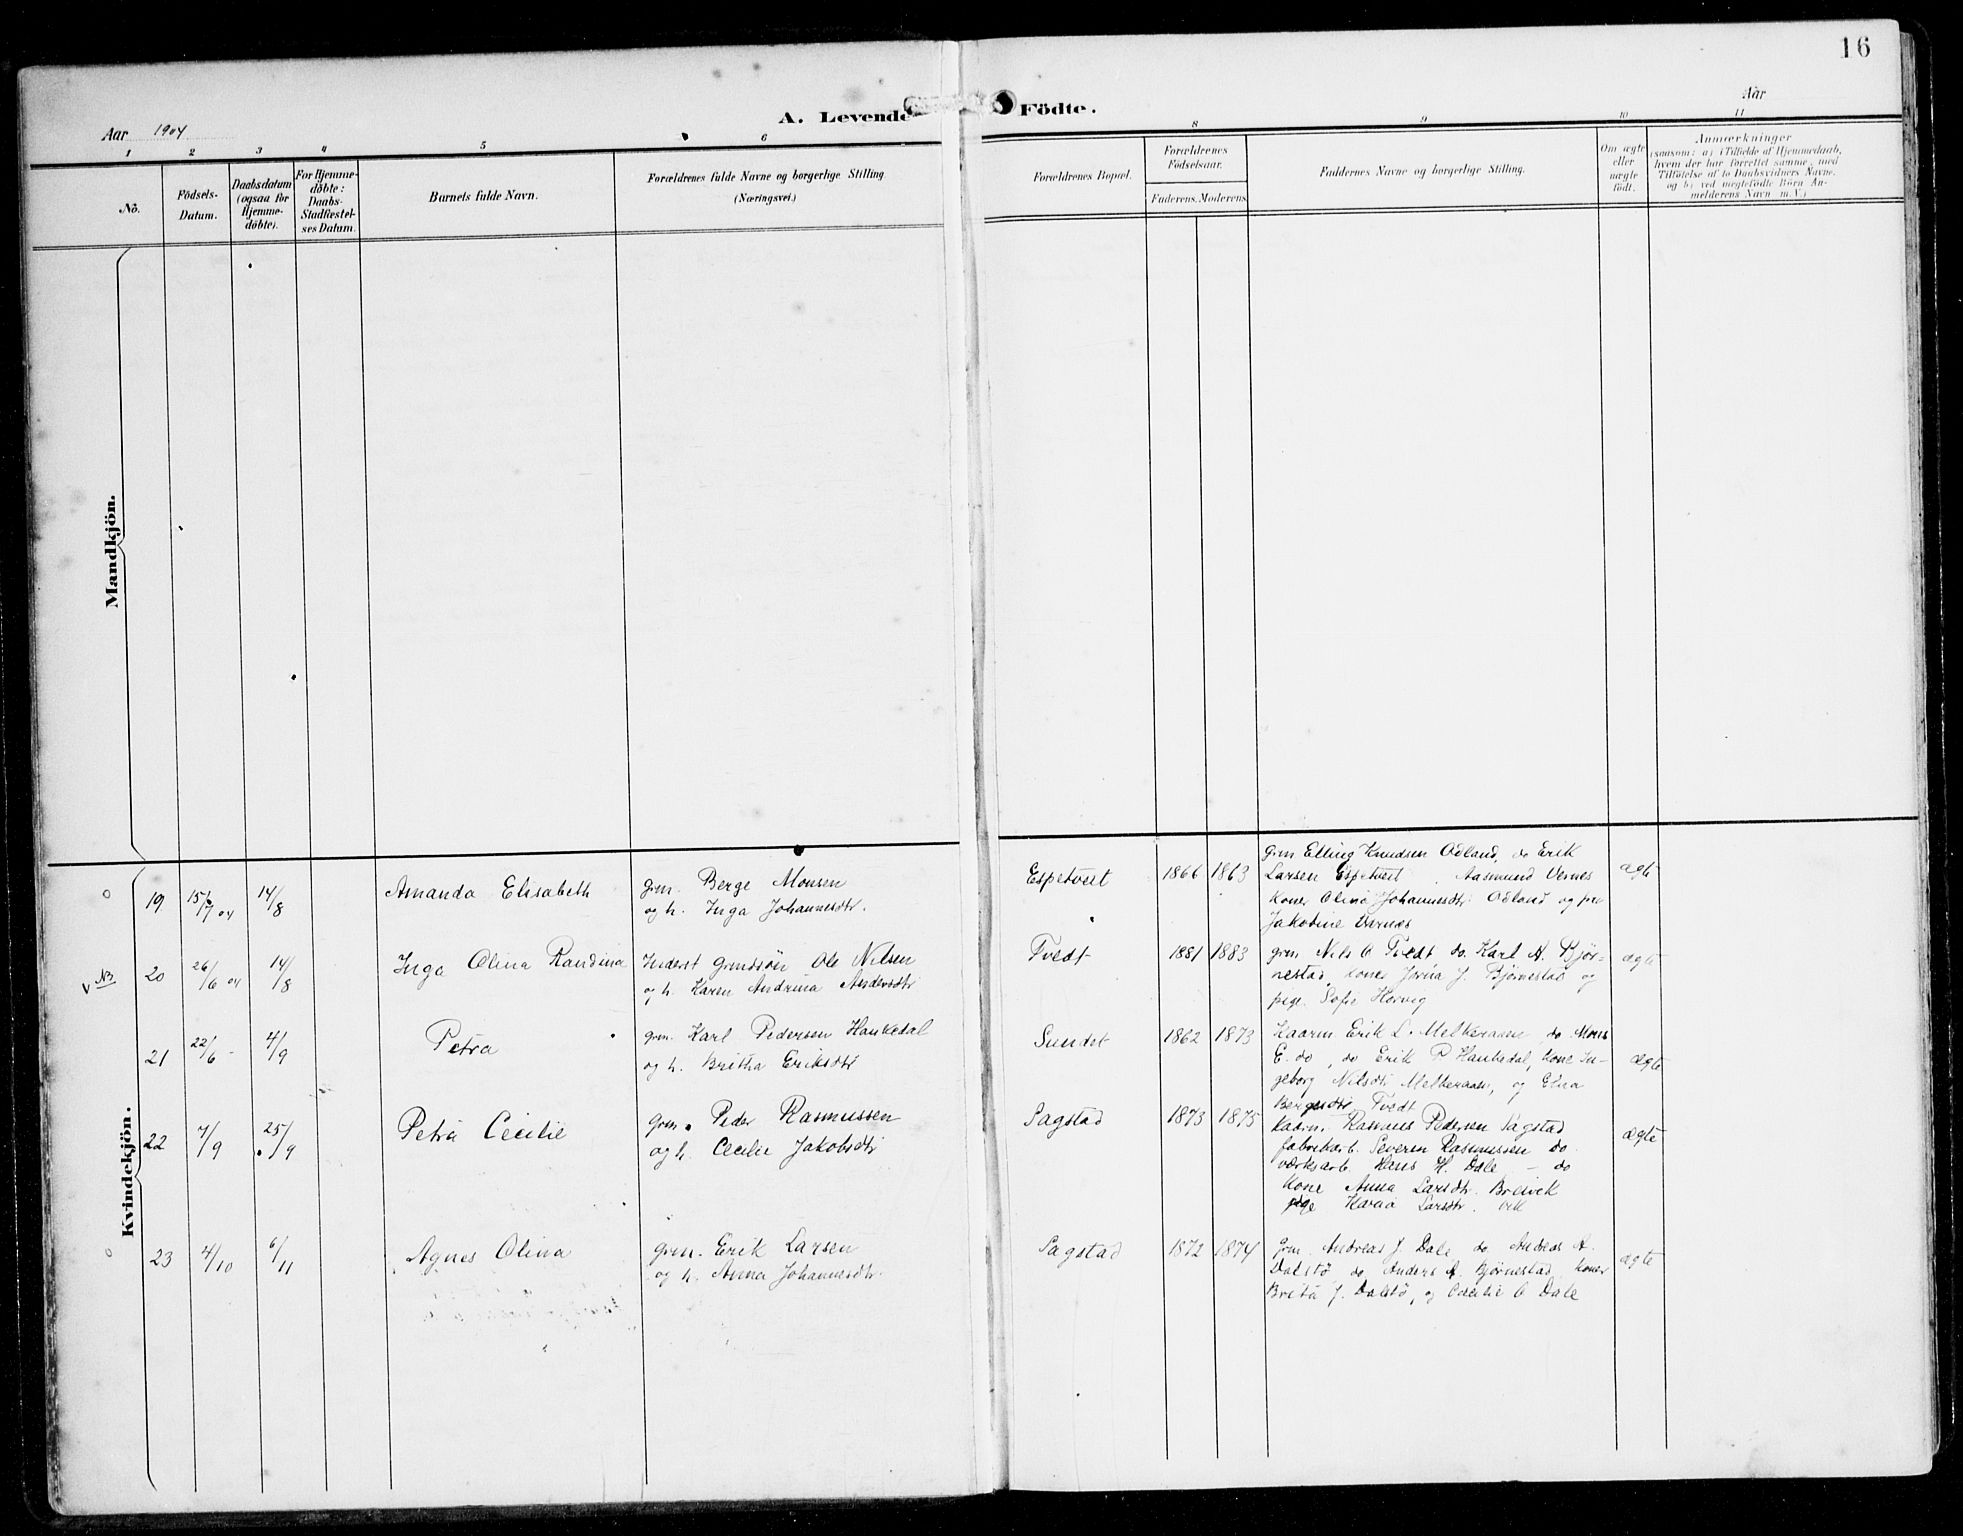 16
Aar 1904
A. Levende Födte.
Aar
1 2 3 4 5 6 8 9 10 11
No.
Födsels-
Datum.
Daabsdatum
(ogsaa for
Hjemme-
døbte).
For Hjemme-
døbte:
Daabs-
Stadfæstel-
ses Datum.
Barnets fulde Navn.
Forældrenes fulde Navne og borgerlige Stilling
(Næringsvei.)
Forældrenes Bopæl.
Forældrenes
Födselsaar.
Faderens. Moderens.
Faddernes Navne og borgerlige Stilling.
Om ægte
eller
uægte
födt.
Anmærkninger
(saasom: a) i Tilfælde af Hjemmedaab,
hvem der har forrettet samme, med
Tilföielse af to Daabsvidners Navne.
og b) ved uægtefödte Börn An-
melderens Navn m. V.)
Mandkjön.
Kvindekjön.
19 15/7 04 14/8
Amanda Elisabeth
grm. Berge Monsen
og h. Inga Johannesdtr.
Espetveit
1866 1863
grm Elling Knudsen Odland, do Erik
Larsen Espetveit Aasmund Vernes
Koner Olina Johannesdtr Odland og
Jakobine Vernes
ægte
NB
20 26/6 04 14/8
Inga Olina Randina
Inderst Grundsön Ole Nilsen
og h. Karen Andrina Andersdtr
Tvedt
1881 1883
grm Nils O Tvedt do Karl A. Bjør-
nestad, Koner J. Bjørnestad og
pige. Sofie Horvig
ægte
21 22/6 - 4/9
Petra
grm. Karl Pedersen Haukedal
og h. Britha Eriksdtr
Sundet
1862 1873
Kaarm. Erik L. Melkeraaen, do Mons
E. do, do Erik P Haukedal, Kone In-
geborg Nilsdtr Melkeraaen, og Elna
Tvedt
ægte
22 7/9 25/9
Petra Cecilie
grm. Peder Rasmussen
og h. Cecilie Jakobsdtr
Sagstad
1873 1875
Kaarm. Rasmus Pedersen Sagstad
fabrikarb. Severin Rasmussen do
værksarb. Hans H. Dale – do
Kone Anna Larsdtr. Breivik
pige Karia Larsdtr.
ægte
23 4/10 6/11
Agnes Olina
grm. Erik Larsen
og h. Anna Johannesdtr.
Sagstad
1872 1874
grm. Andreas J. Dale do Andreas A.
Dalstø, do Anders A. Bjørnestad, Koner
Brita J. Dalstø, og Cecilie O Dale
ægte